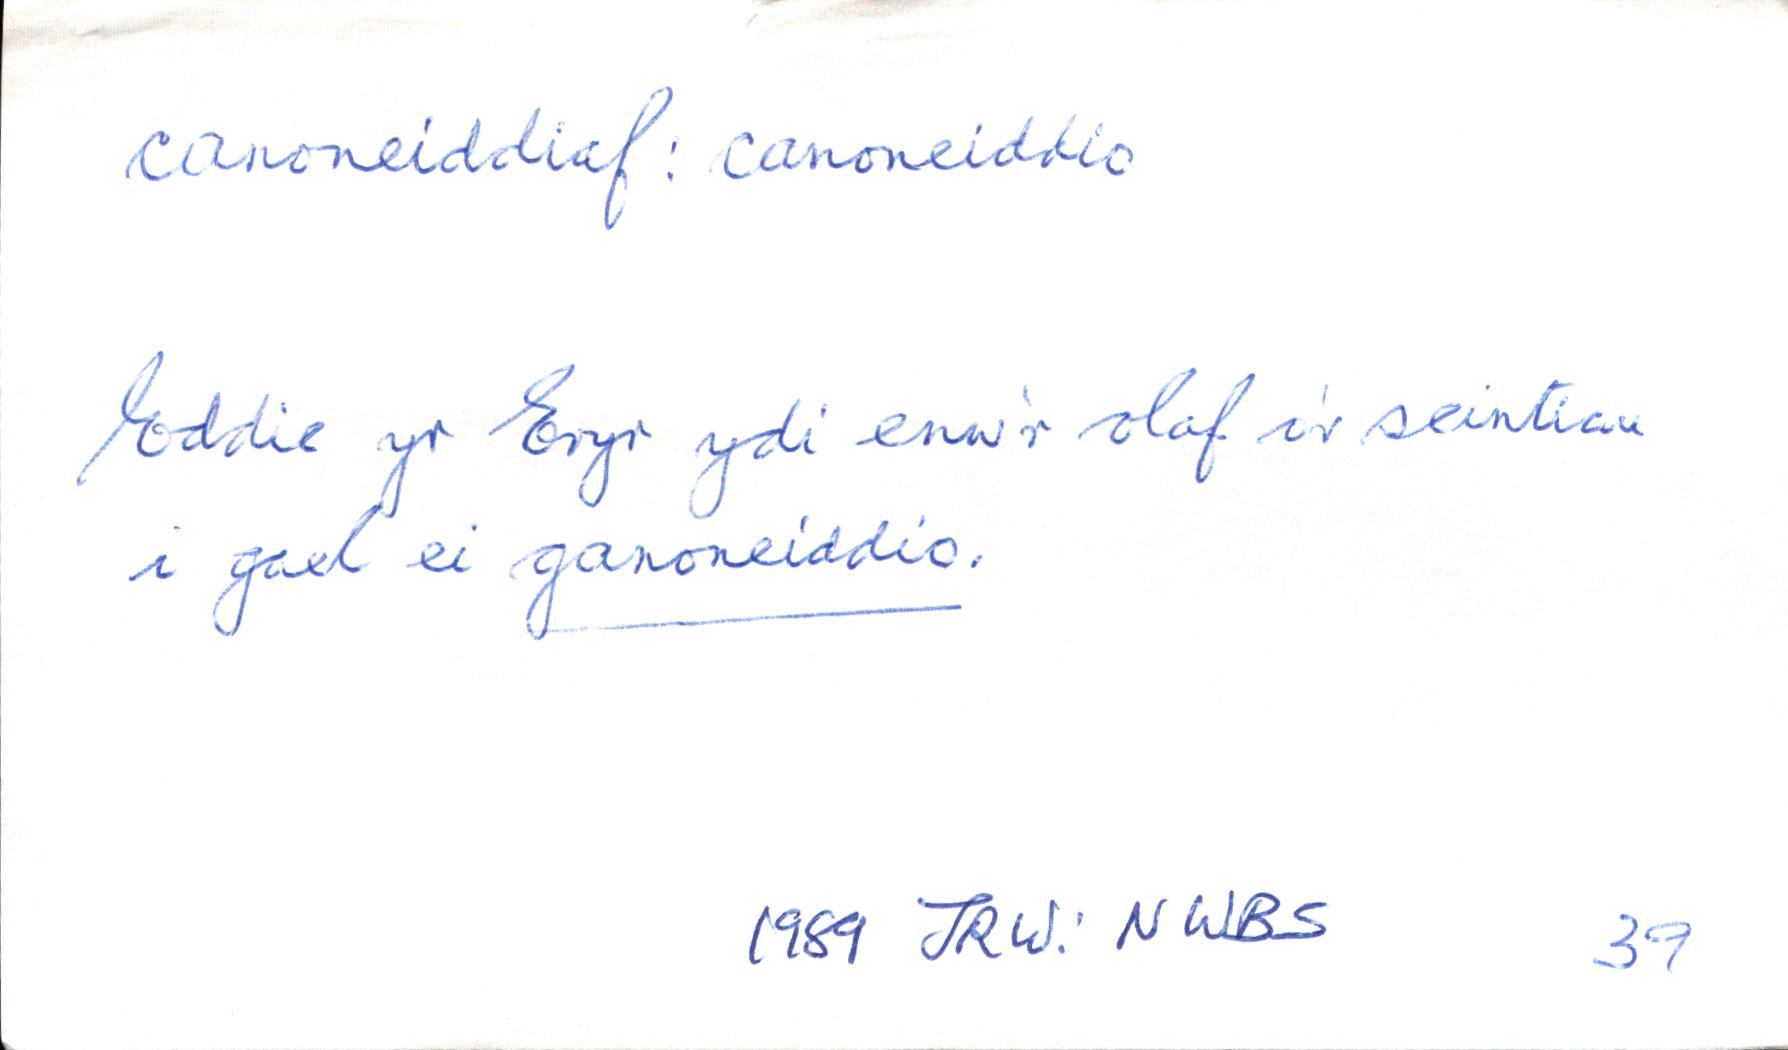 canoneiddiaf: canoneiddio
Eddie yr Eryr ydi enw'r olaf o'r seintiau
i gael ei ganoneiddio.
1989 JRW: NWBS 39